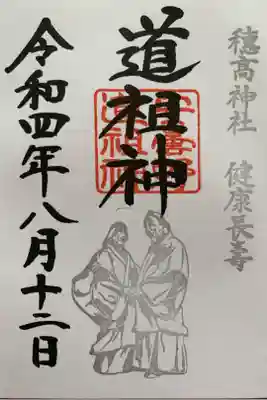 穂高神社 健康長寿
道祖神
令和四年八月十二日